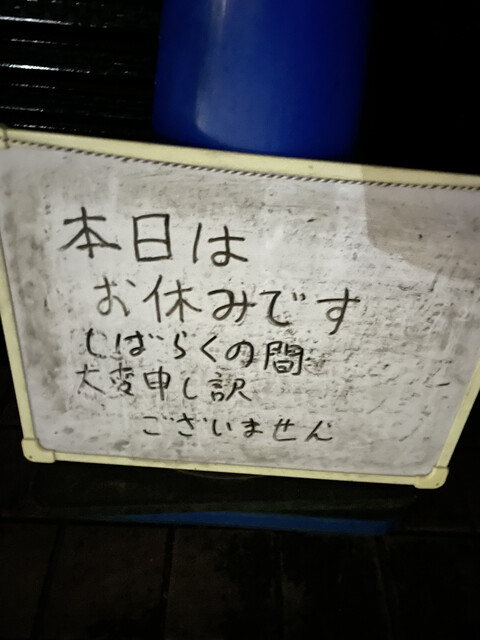 本日は
お休みです
しばらくの間
大変申し訳
ございません